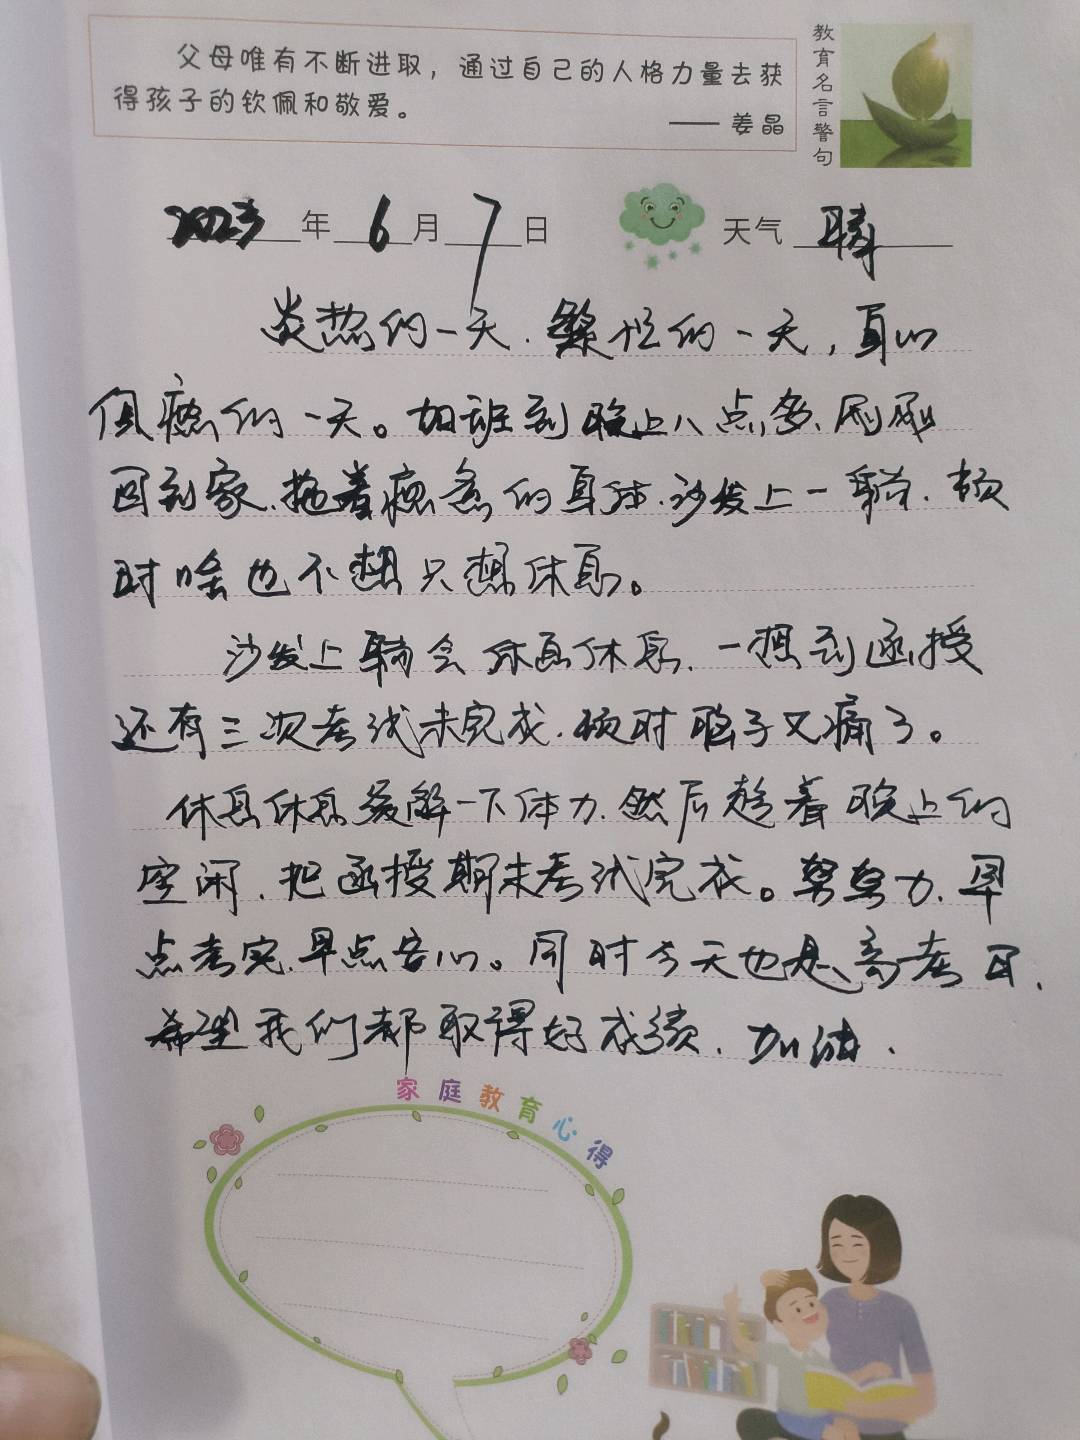 父母唯有不断进取，通过自己的人格力量去获
得孩子的钦佩和敬爱。
—— 姜晶
教育名言警句
2023年6月7日 天气 晴
炎热的一天.繁忙的一天，身心
俱疲的一天。加班到晚上八点多、刚刚
回到家、拖着疲惫的身体.沙发上一躺.顿
时啥也不想只想休息。
沙发上躺会休息休息.一想到函授
还有三次考试未完成.顿时脑子又痛了。
休息休息缓解一下体力.然后趁着晚上的
空闲.把函授期末考试完成。努努力.早
点考完.早点安心。同时今天也是高考日.
希望我们都取得好成绩.加油.
家庭教育心得